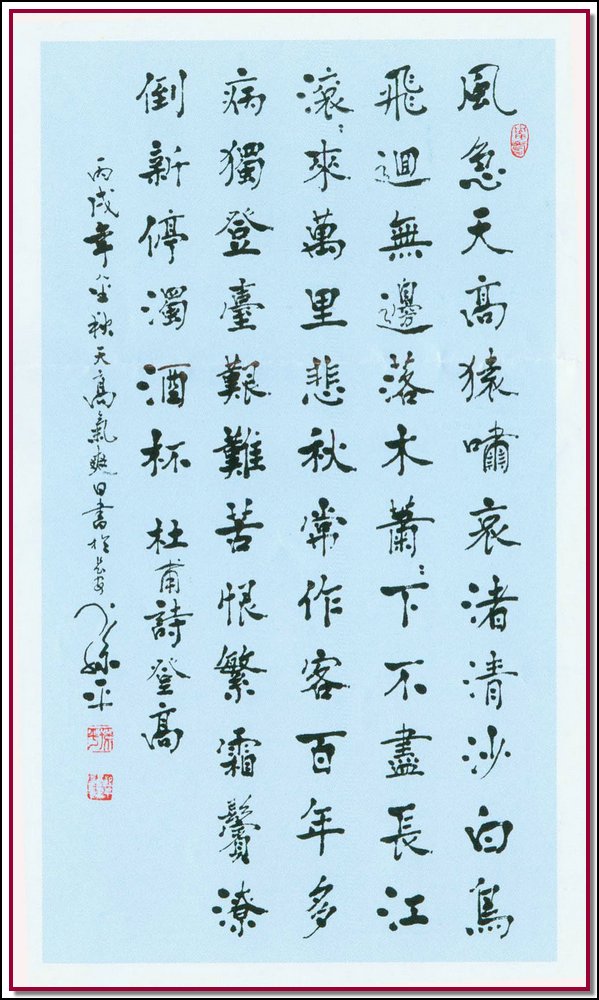 風急天高猿嘯哀渚清沙白鳥
飛迴無邊落木蕭〻下不盡長江
滾〻來萬里悲秋常作客百年多
病獨登臺艱難苦恨繁霜鬢潦
倒新停濁酒杯 杜甫詩登高
丙戌年金秋天高氣爽日書於長安 平